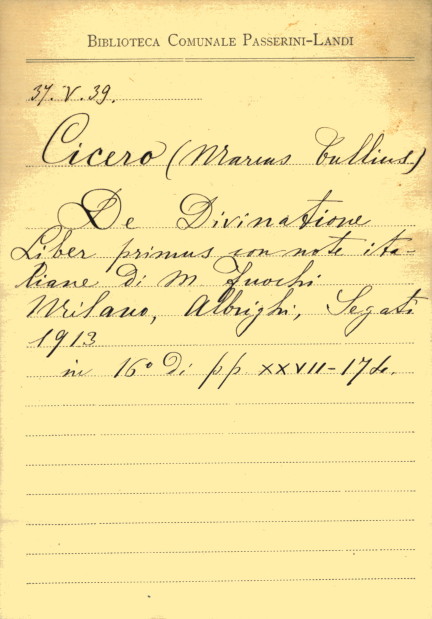 BIBLIOTECA COMUNALE PASSERINI-LANDI
37.V.39.
Cicero (Marcus Tullius)
De Divinatione
Liber primus con note ita-
liane di M. Fuochi
Milano, Albrighi, Segati
1913
in 16° di pp XXVII-174.